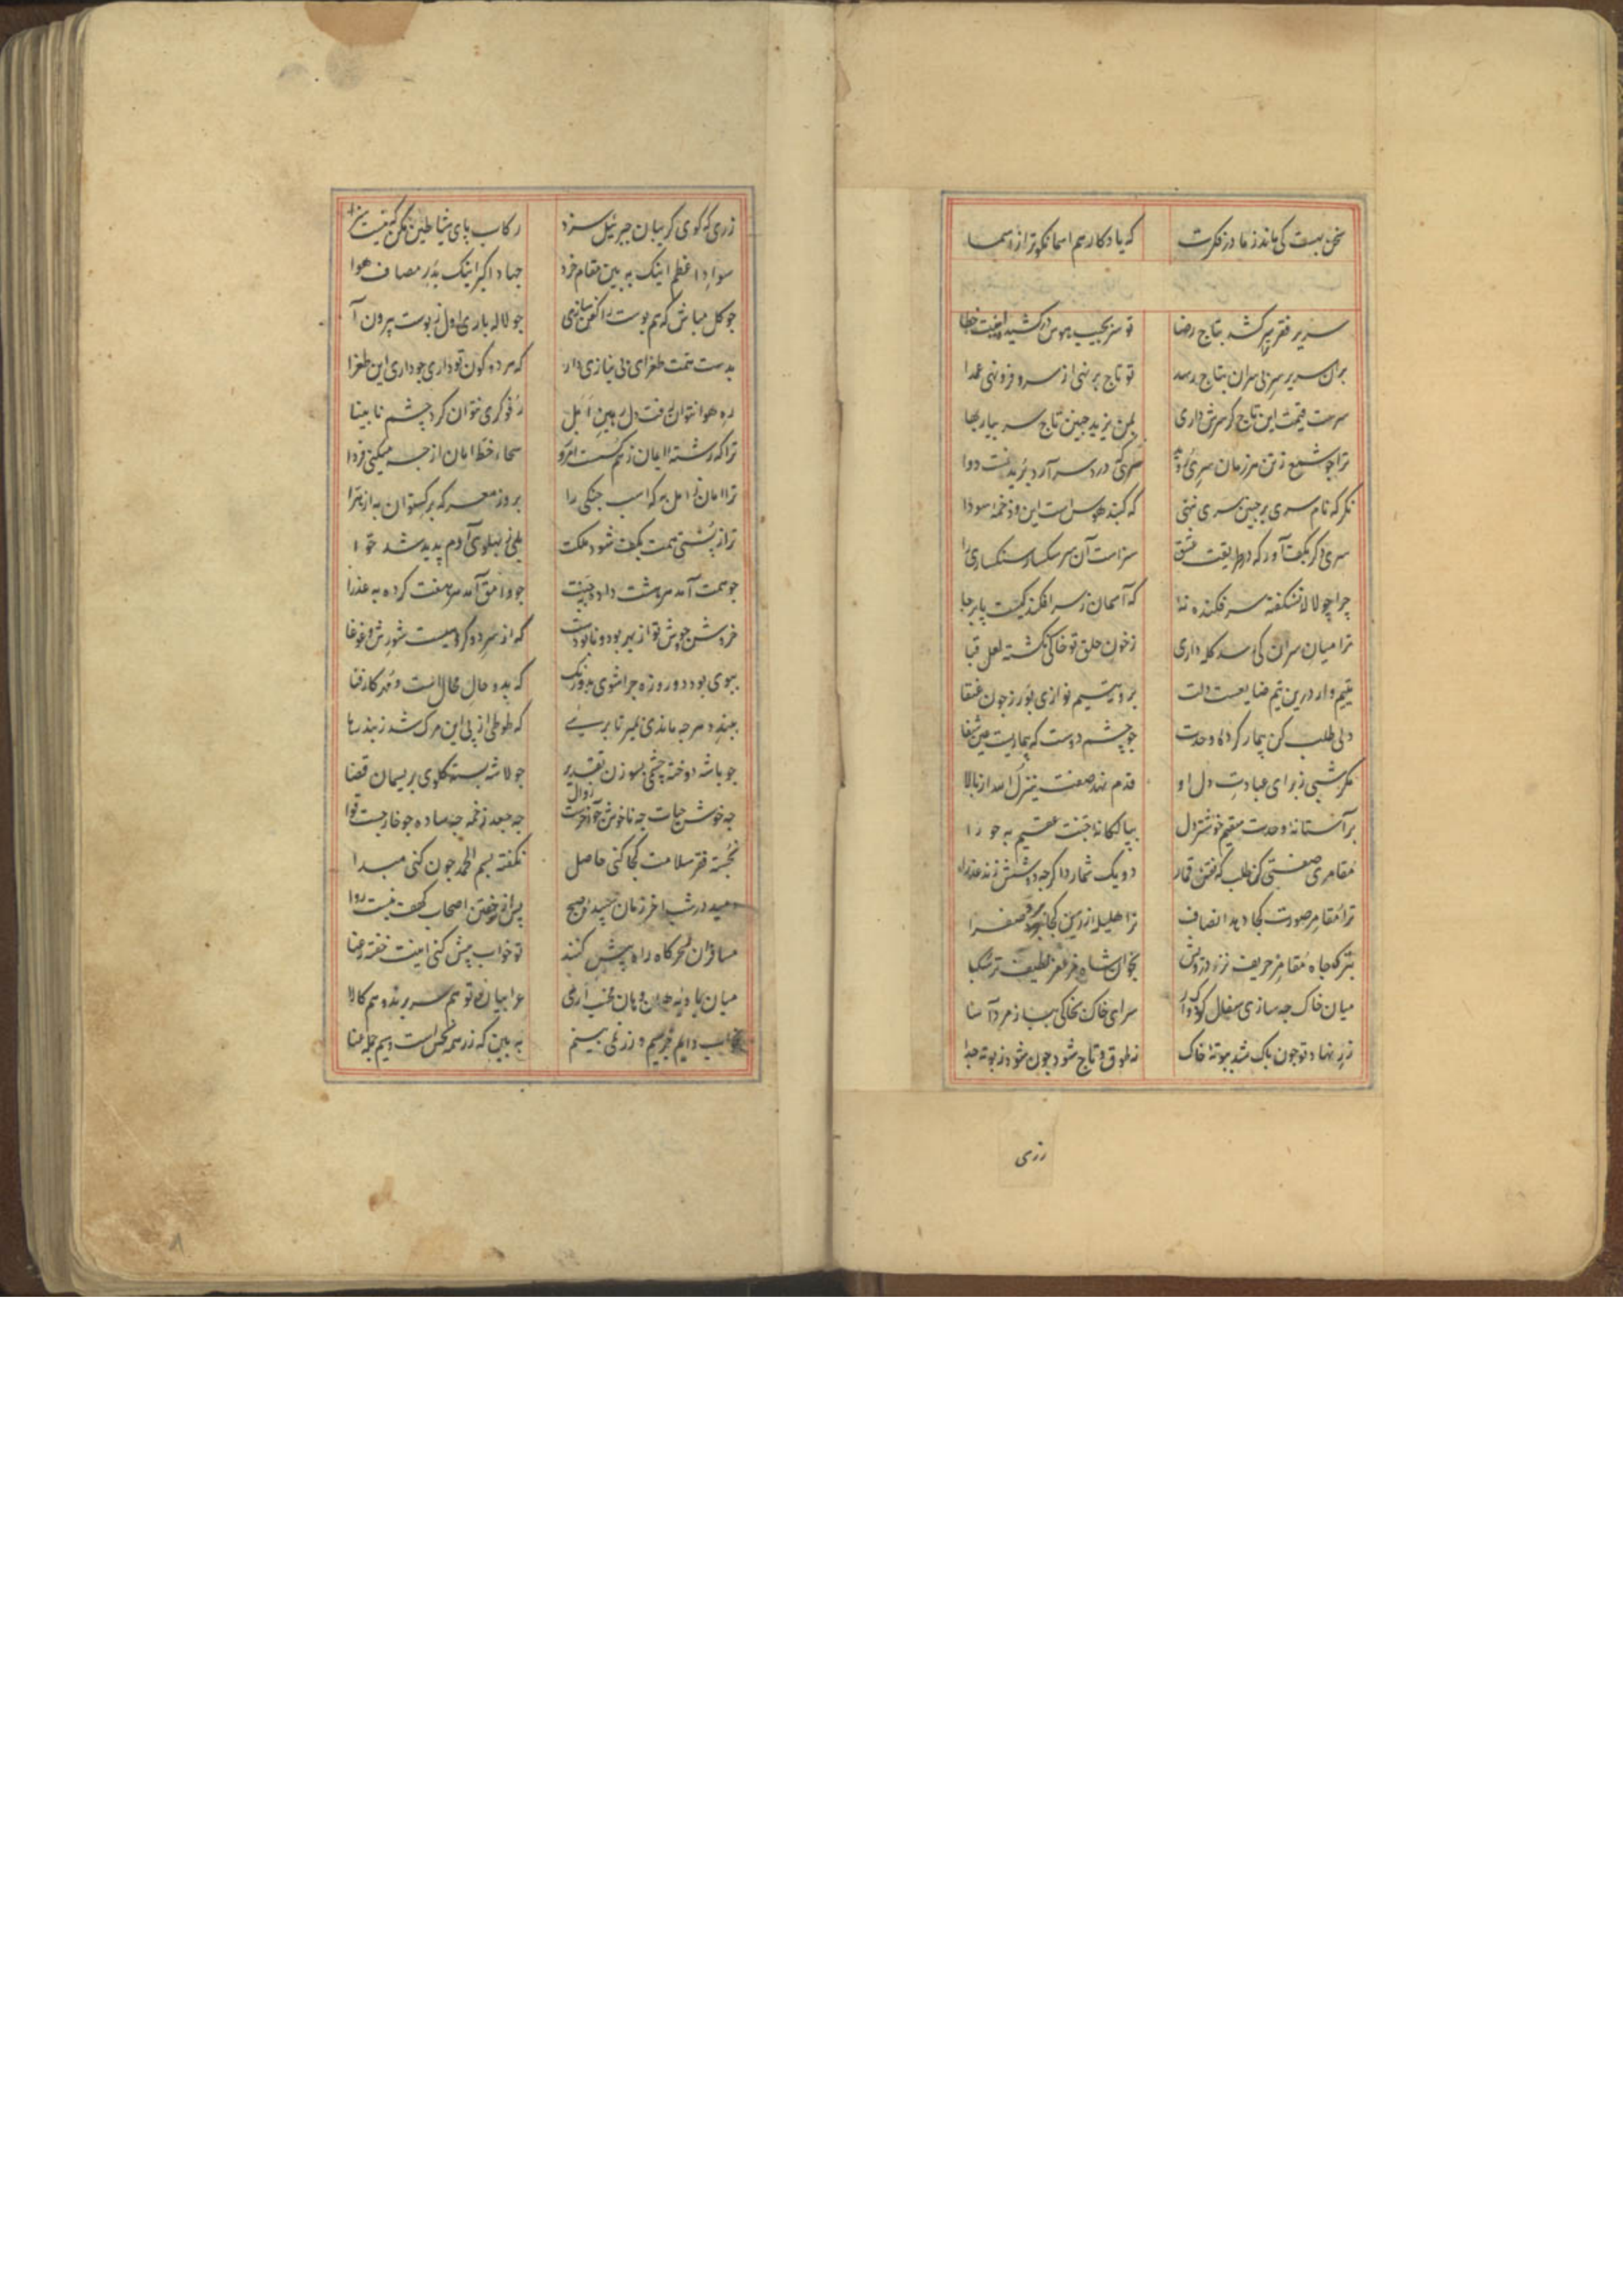 سخن بهست کی ماند ز ما در فکرت که یادکار هم اسما نکوتر از اسما
سریر فقر ترا سر کشد بتاج رضا تو سر بجیب هوس درکشیده اینت خطا
بران سریر سر بی سران بتاج رسد تو تاج بر نهی از سر فرو نهی عمدا
سرست قیمت این تاج کر سرش داری بمن یزید چنین تاج سر بیار بها
ترا چو شمع ز تن هر زمان سری روید سری که درد سر آرد بریدنست دوا
نکر که نام سری بر چنین سری ننهی که کنبد هوس است این و دخمه سودا
سری دکر بکف آور که در طریقت عشق سزاست آن سر سکسار سنکساری را
چرا چو لاله نشکفته سر فکنده نه که آسمان ز سر افکندکیست پابرجا
ترا میان سران کی رسد کله داری ز خون حلق تو خاکی نکشته لعل قبا
یتیم وار درین تیم ضایعست دلت برو یتیم نوازی بورز چون عنقا
دلی طلب کن بیمار کرده وحدت چو چشم دوست که بیماریست عین شفا
مکر شبی ز برای عیادت دل او قدم نهد صفت ینزل الله از بالا
بر آستانه وحدت سقیم خوشتر دل ببالکانه جنت عقیم به حورا
مقامری صفتی کن طلب که نقش قمار دو یک شمارد اکرچه دو شش زند عذرا
ترا مقامر صورت کجا دهد انصاف ترا هلیله زرین کجا برد صفرا
بترک جاه مقامر ظریف‌تر درویش بخوان شاه مزعفر لطیف‌تر سکبا
میان خاک چه سازی سفال کودک‌وار سرای خاک بخاکی بباز مردآسا
زر نهاد تو چون پاک شد ببوته خاک نه طوق و تاج شود چون شود ز بوته جدا
زری
زری که کوی کریبان جبرئیل سزد رکاب پای شیاطین مکن که نیست سزا
سواد اعظم اینک به بین مقام خرد جهاد اکبر اینک بدر مصاف هوا
چو کل مباش که هم پوست را کفن سازی چو لاله باری اول ز پوست بیرون آ
بدست همت طغرای بی نیازی دار که هر دو کون تو داری چو داری این طغرا
ره هوا نتوان رفت دل رهین امل رفوکری نتوان کرد چشم نابینا
ترا که رشته ایمان ز هم کسست امروز سحای خط امان از چه میکنی فردا
ترا امان ز امل به که اسب جنکی را بروز معرکه برکستوان به از هرا
ترا ز پشتی همت بکف شود ملکت بلی ز پهلوی آدم پدید شد حوا
چو همت آمد هر هشت داده جنت چو وامق آمد هر هفت کرده به عذرا
خروش و جوش تو از بهر بود و نابودست که از سر دو کروهیست شورش و غوغا
ببوی بود دو روزه چرا شوی خرم که بدو حال محالست و مهر کار فنا
ببند دم هر چه ماندی بمیر تا برهی که طوطی از پی این مرک شد ز بند رها
چو باشه دوخته چشمی بسوزن تقدیر چو لاشه بسته کلوی بریسمان قضا
چه خوش حیات چه ناخوش چو آخرست زوال چه جعد زخمه چه ساده چو خارجست نوا
نجسته فقر سلامت کجا کنی حاصل نکفته بسم الحمد چون کنی مبدا
دمید در شب آخر زمان سپیده صبح پس از تو خفتن اصحاب کهف نیست روا
مسافران سحرکاه راه پیش کنند تو خواب پیش کنی اینت خفته رعنا
میان بادیه هان و هان مخسب ارنی عرابیان ز تو هم سر برند و هم کالا
بخواب دایم جز سیم و زر نمی بینی به بین که زر همه نحس است و سیم جمله عنا